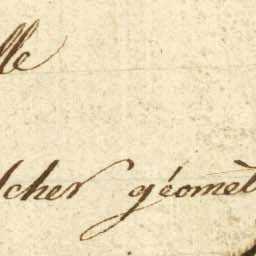 lle
lcher géomèt